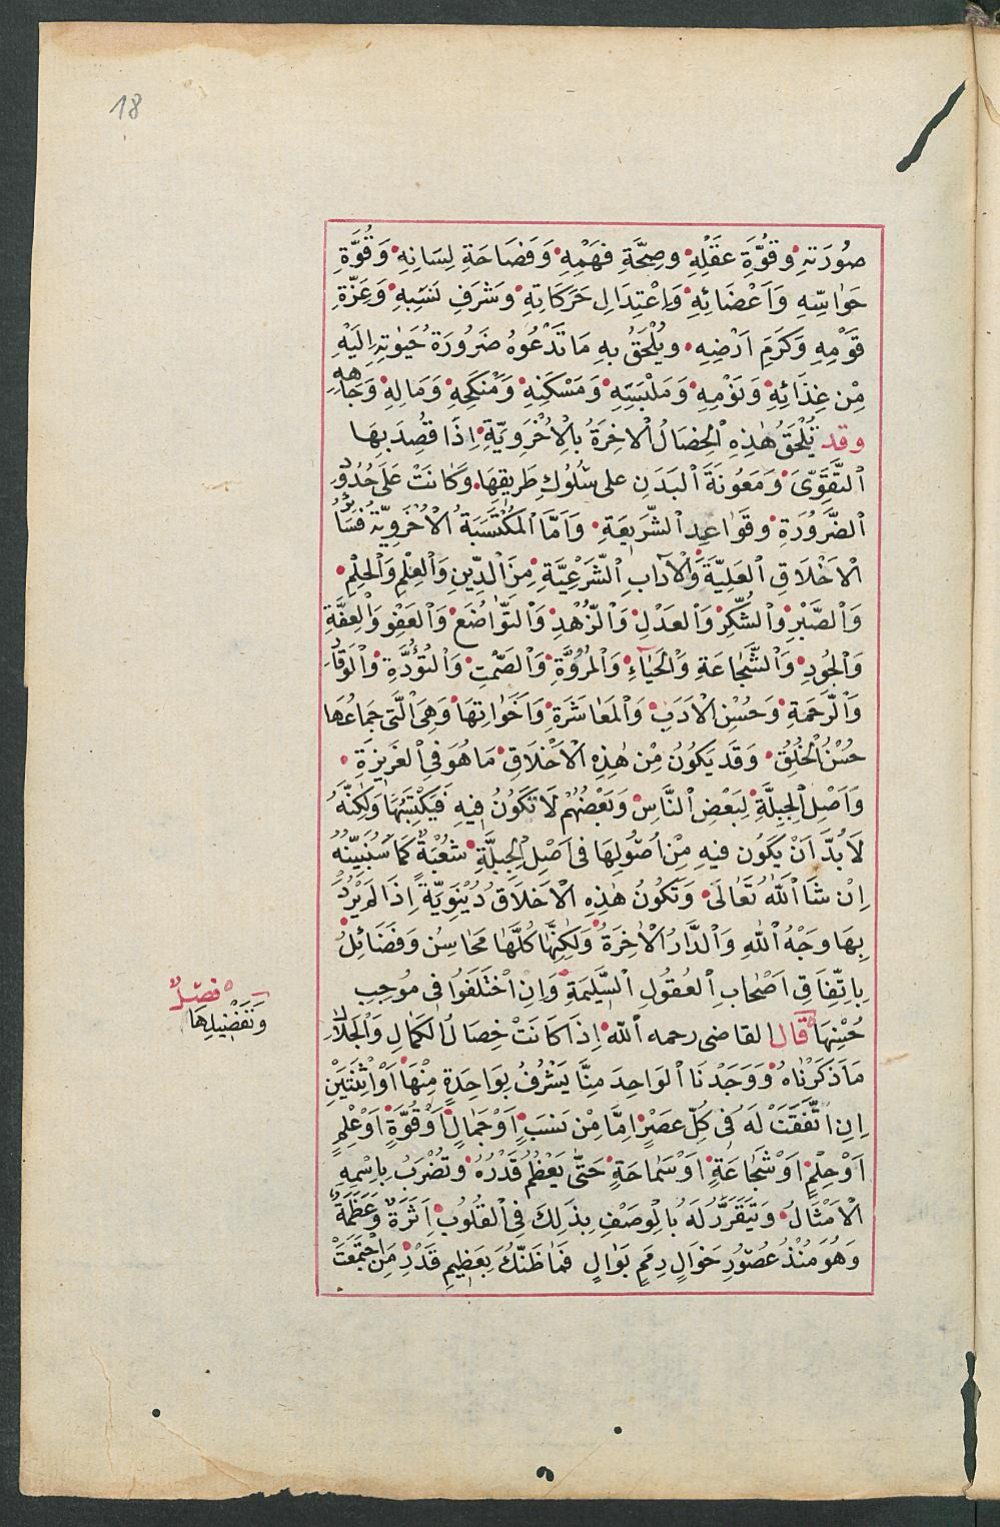 18
صُورَتِهِ وَقُوَّةِ عَقْلِهِ وَصِحَّةِ فَهْمِهِ وَفَصَاحَةِ لِسَانِهِ وَقُوَّةِ
حَوَاسِّهِ وَاَعْضَائِهِ وَاِعْتِدَالِ حَرَكَاتِهِ وَشَرَفِ نَسَبِهِ وَعِزَّةِ
قَوْمِهِ وَكَرَمِ اَرْضِهِ وَيُلْحَقُ بِهِ مَا تَدْعُوهُ ضَرُورَةُ حَيٰوتِهِ اِلَيْهِ
مِنْ غِذَائِهِ وَنَوْمِهِ وَمَلْبَسِهِ وَمَسْكَنِهِ وَمَنْكَحِهِ وَمَالِهِ وَجَاهِهِ
وقد تُلْحَقُ هٰذِهِ الْخِصَالُ الْاٰخِرَةُ بِالْاُخْرَوِيَّةِ اِذَا قُصِدَ بِهَا
التَّقْوٰى وَمَعُونَةَ الْبَدَنِ على سُلُوكِ طَرِيقِهَا وَكَانَتْ عَلَى حُدُودِ
الضَّرُورَةِ وَقَوَاعِدِ الشَّرِيعَةِ وَاَمَّا الْمُكْتَسَبَةُ الْاُخْرَوِيَّةُ فَسَائِرُ
الْاَخْلَاقِ الْعَلِيَّةِ وَالْاٰدَابِ الشَّرْعِيَّةِ مِنَ الدِّينِ وَالْعِلْمِ وَالْحِلْمِ
وَالصَّبْرِ وَالشُّكْرِ وَالْعَدْلِ وَالزُّهْدِ وَالتَّوَاضُعِ وَالْعَفْوِ وَالْعِفَّةِ
وَالْجُودِ وَالشَّجَاعَةِ وَالْحَيَاءِ وَالْمُرُوَّةِ وَالصَّمْتِ وَالتُّؤَدَةِ وَالْوَقَارِ
وَالرَّحْمَةِ وَحُسْنِ الْاَدَبِ وَالْمُعَاشَرَةِ وَاَخَوَاتِهَا وَهِىَ الَّتِى جِمَاعُهَا
حُسْنُ الْخُلُقِ وَقَد يَكُونُ مِنْ هٰذِهِ الْاَخْلَاقِ مَا هُوَ فِى الْغَرِيزَةِ
وَاَصْلِ الْجِبِلَّةِ لِبَعْضِ النَّاسِ وَبَعْضُهُمْ لَا تَكُونُ فِيهِ فَيَكْتَسِبُهَا وَلٰكِنَّهُ
لَا بُدَّ اَنْ يَكُون فيهِ مِنْ اُصُولِهَا فى اَصْلِ الْجِبِلَّةِ شُعْبَةٌ كَمَا سَنُبَيِّنُهُ
اِنْ شَا اللّٰهُ تَعَالَى وَتَكُونُ هٰذِهِ الْاَخْلَاقُ دُنْيَوِيَّةً اِذَا لَمْ يُرَدْ
بِهَا وَجْهُ اللّٰهِ وَالدَّارُ الْاٰخِرَةُ وَلٰكِنَّهَا كُلَّهَا مَحَاسِنُ وَفَضَائِلُ
بِاتِّفَاقِ اَصْحَابِ الْعُقُولِ السَّلِيمَةِ وَاِنِ اخْتَلَفُوا فى مُوجِبِ
حُسْنِهَا قال القاضى رحمه الله اِذَا كَانَتْ خِصَالُ الْكَمَالِ وَالْجَلَالِ
مَا ذَكَرْنَاهُ وَوَجَدْنَا الْوَاحِدَ مِنَّا يَشْرُفُ بِوَاحِدَةٍ مِنْهَا اَوْ اثْنَتَيْنِ
اِنِ اتَّفَقَتْ لَهُ فى كُلِّ عَصْرٍ اِمَّا مِنْ نَسَبٍ اَوْ جَمَالٍ اَوْ قُوَّةٍ اَوْ عِلْمٍ
اَوْ حِلْمٍ اَوْ شَجَاعَةٍ اَوْ سَمَاحَةٍ حَتّٰى يَعْظُمَ قَدْرُهُ وَتُضْرَبُ بِاِسْمِهِ
الْاَمْثَالُ وَيَتَقَرَّرُ لَهُ بِالْوَصْفِ بِذَلِكَ فِى الْقُلُوبِ اَثَرَةٌ وَعَظَمَةٌ
وَهُوَ مُنْذُ عُصُورٍ خَوَالٍ رِمَمٌ بَوَالٍ فَمَا ظَنُّكَ بِعَظِيمِ قَدْرِ مَنِ اجْتَمَعَتْ
فصلٌ
وَتَفْضِيلِهَا